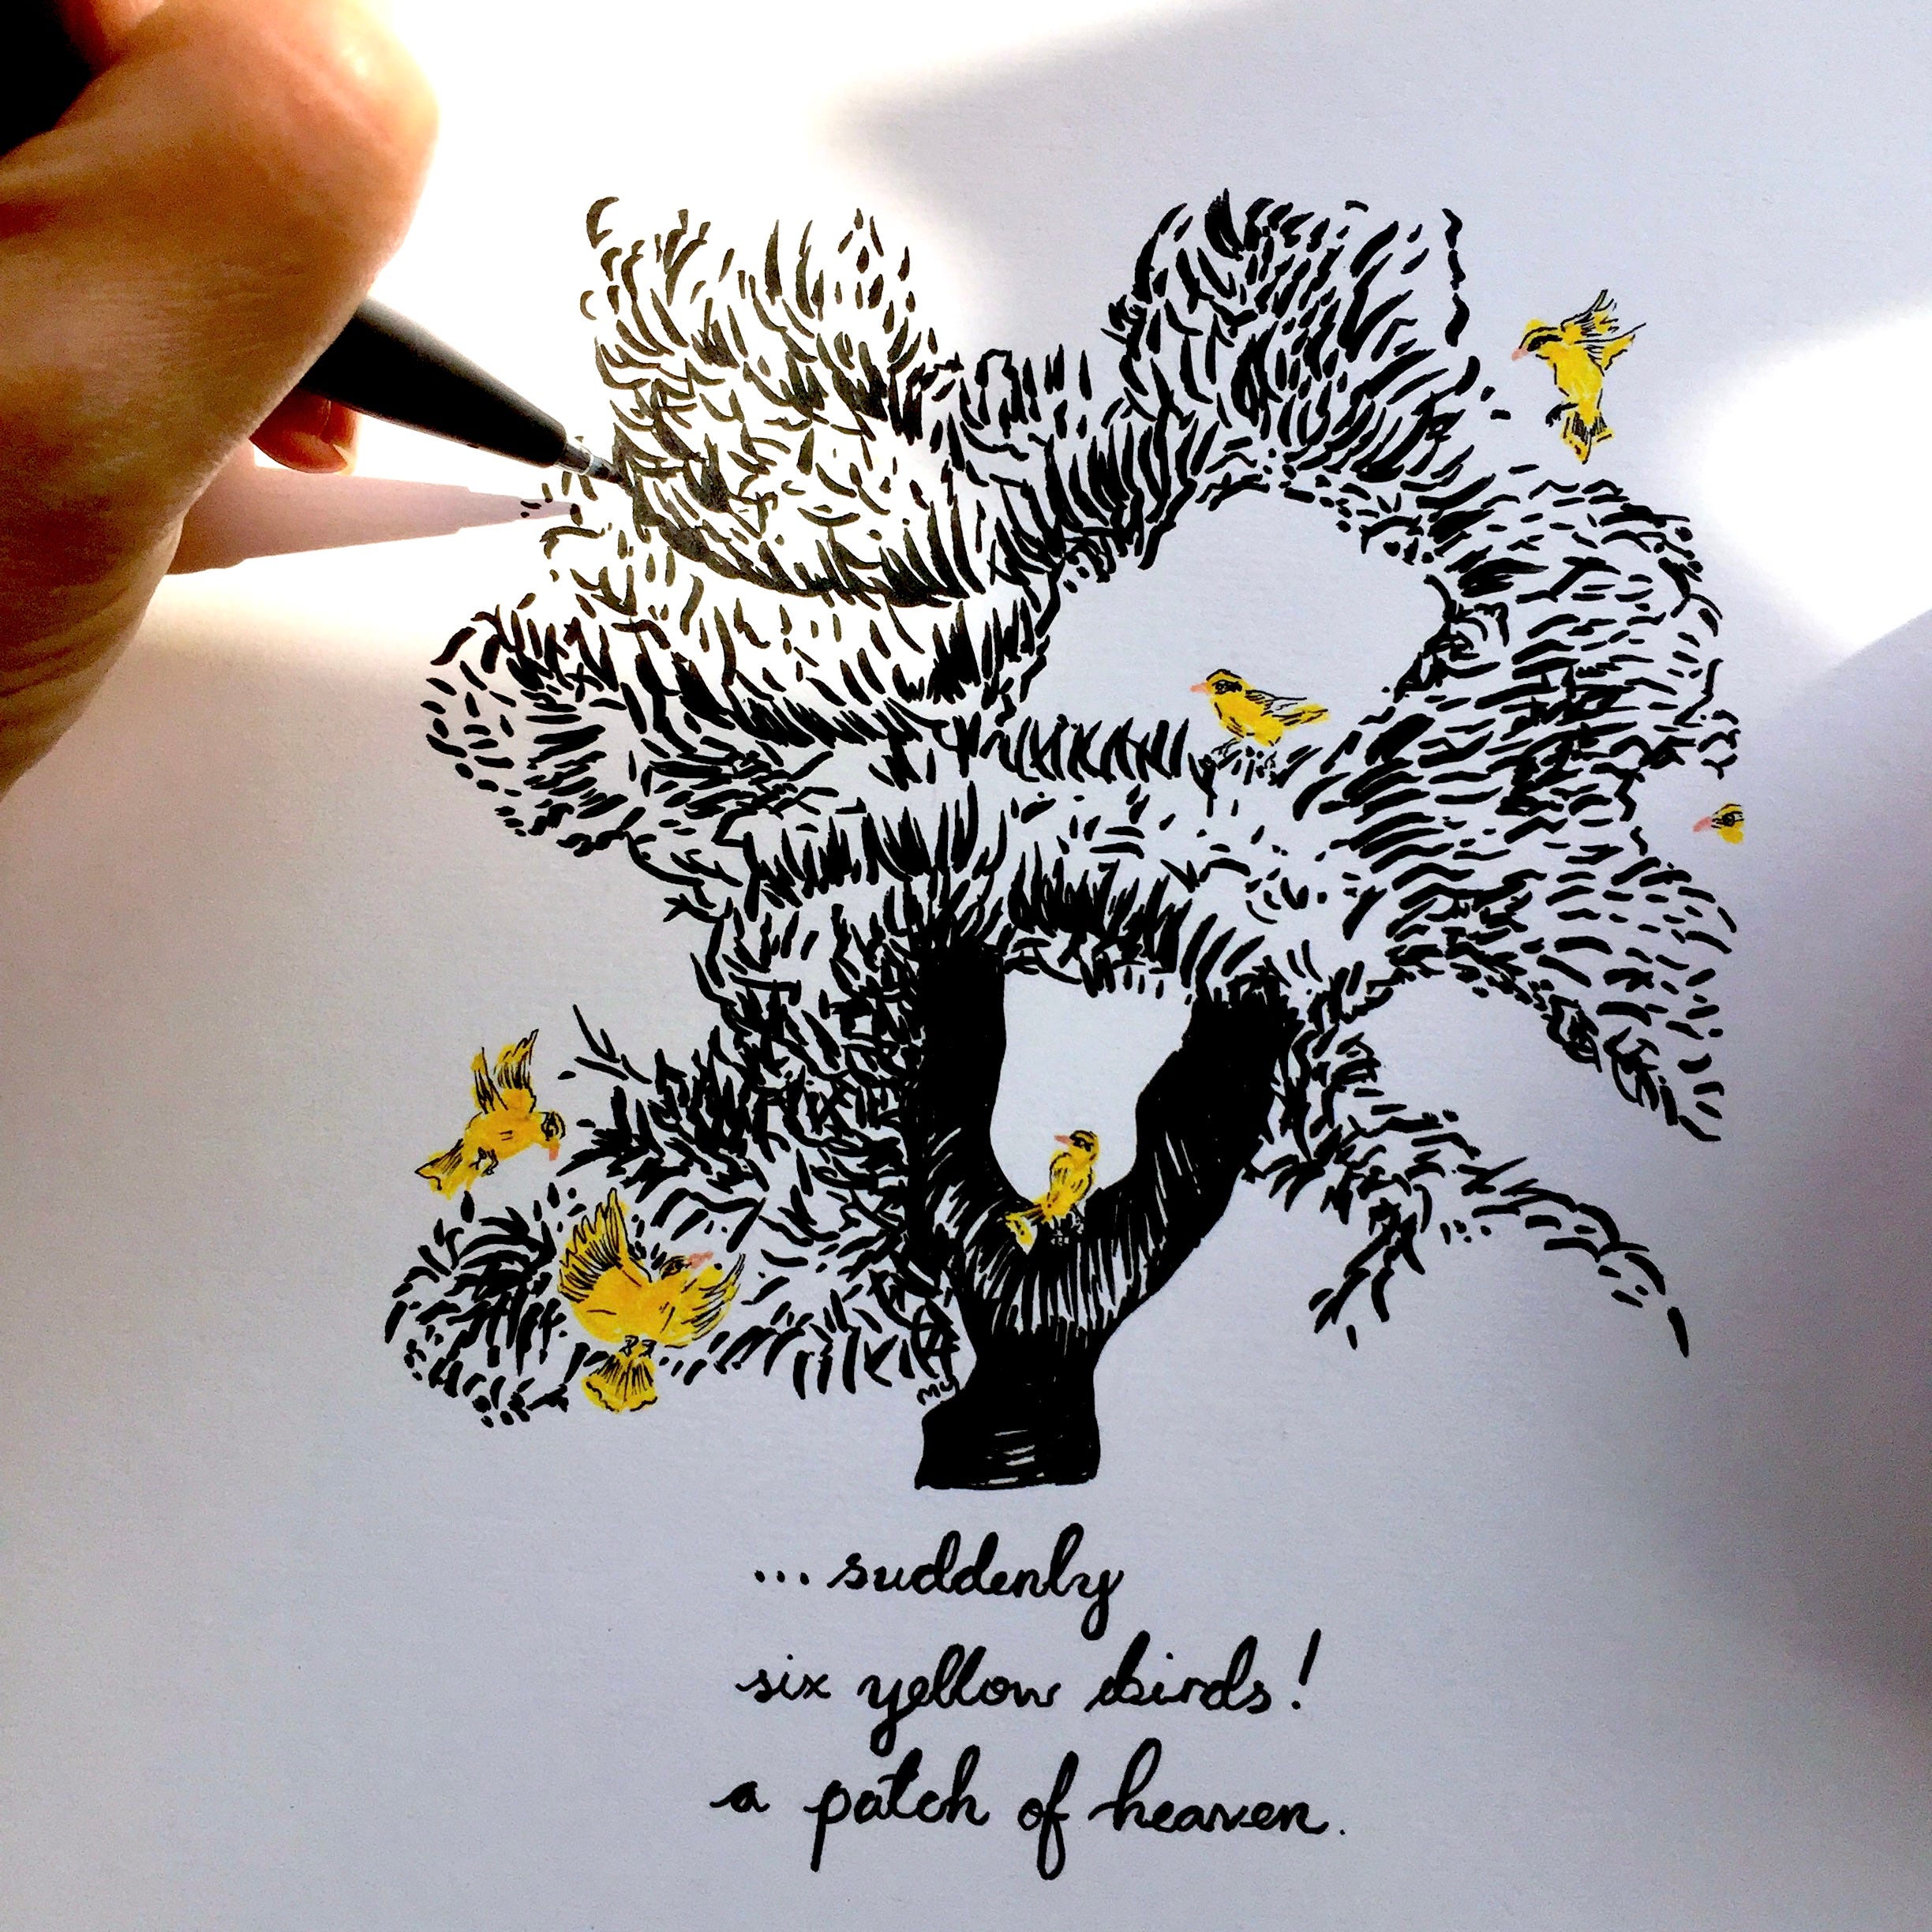 ... suddenly
six yellow birds!
a patch of heaven.